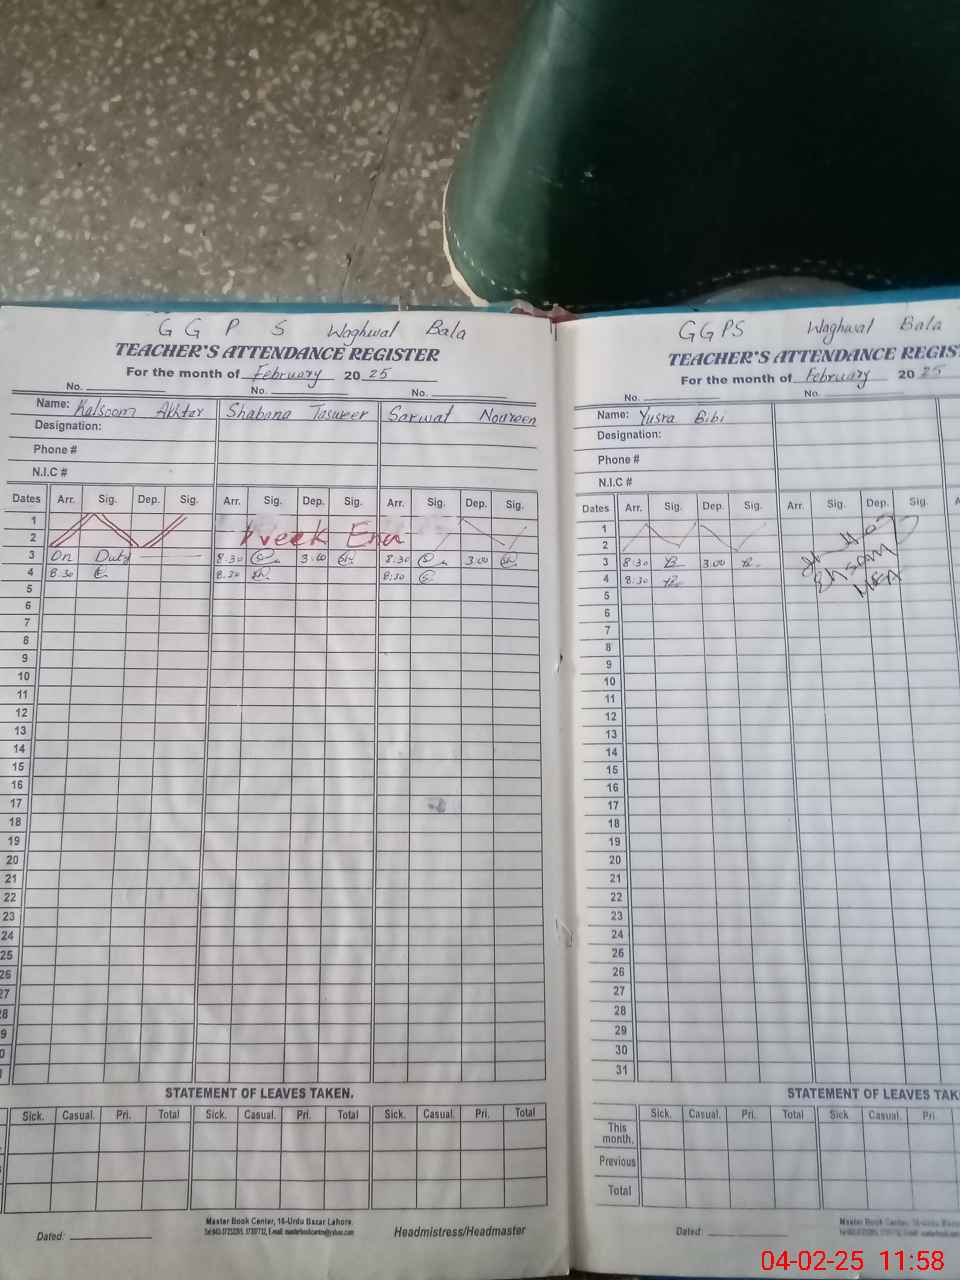 G G P S Waghwal Bala
TEACHER'S ATTENDANCE REGISTER
For the month of February 20 25
No. No. No.
Name: Kalsoom Akhtar Shabana Tasweer Sarwat Noureen
Designation:
Phone #
N.I.C #
Dates Arr. Sig. Dep. Sig. Arr. Sig. Dep. Sig. Arr. Sig. Dep. Sig.
1
2 Week End
3 On Duty 8:30 3:00 8:30 3:00
4 8:30 8:30 8:30
5
6
7
8
9
10
11
12
13
14
15
16
17
18
19
20
21
22
23
24
25
26
27
STATEMENT OF LEAVES TAKEN.
Sick. Casual. Pri. Total Sick. Casual. Pri. Total Sick. Casual. Pri. Total
Master Book Center, 16-Urdu Bazar Lahore.
Dated: Headmistress/Headmaster
GGPS Waghwal Bala
TEACHER'S ATTENDANCE REGIS
For the month of February 20 25
No. No.
Name: Yusra Bibi
Designation:
Phone #
N.I.C #
Dates Arr. Sig. Dep. Sig. Arr. Sig. Dep. Sig.
1
2
3 8:30 3:00
4 8:30
5
6
7
8
9
10
11
12
13
14
15
16
17
18
19
20
21
22
23
24
26
26
27
28
29
30
31
STATEMENT OF LEAVES TAK
Sick. Casual. Pri. Total Sick Casual. Pri.
This month.
Previous
Total
Dated:
04-02-25 11:58